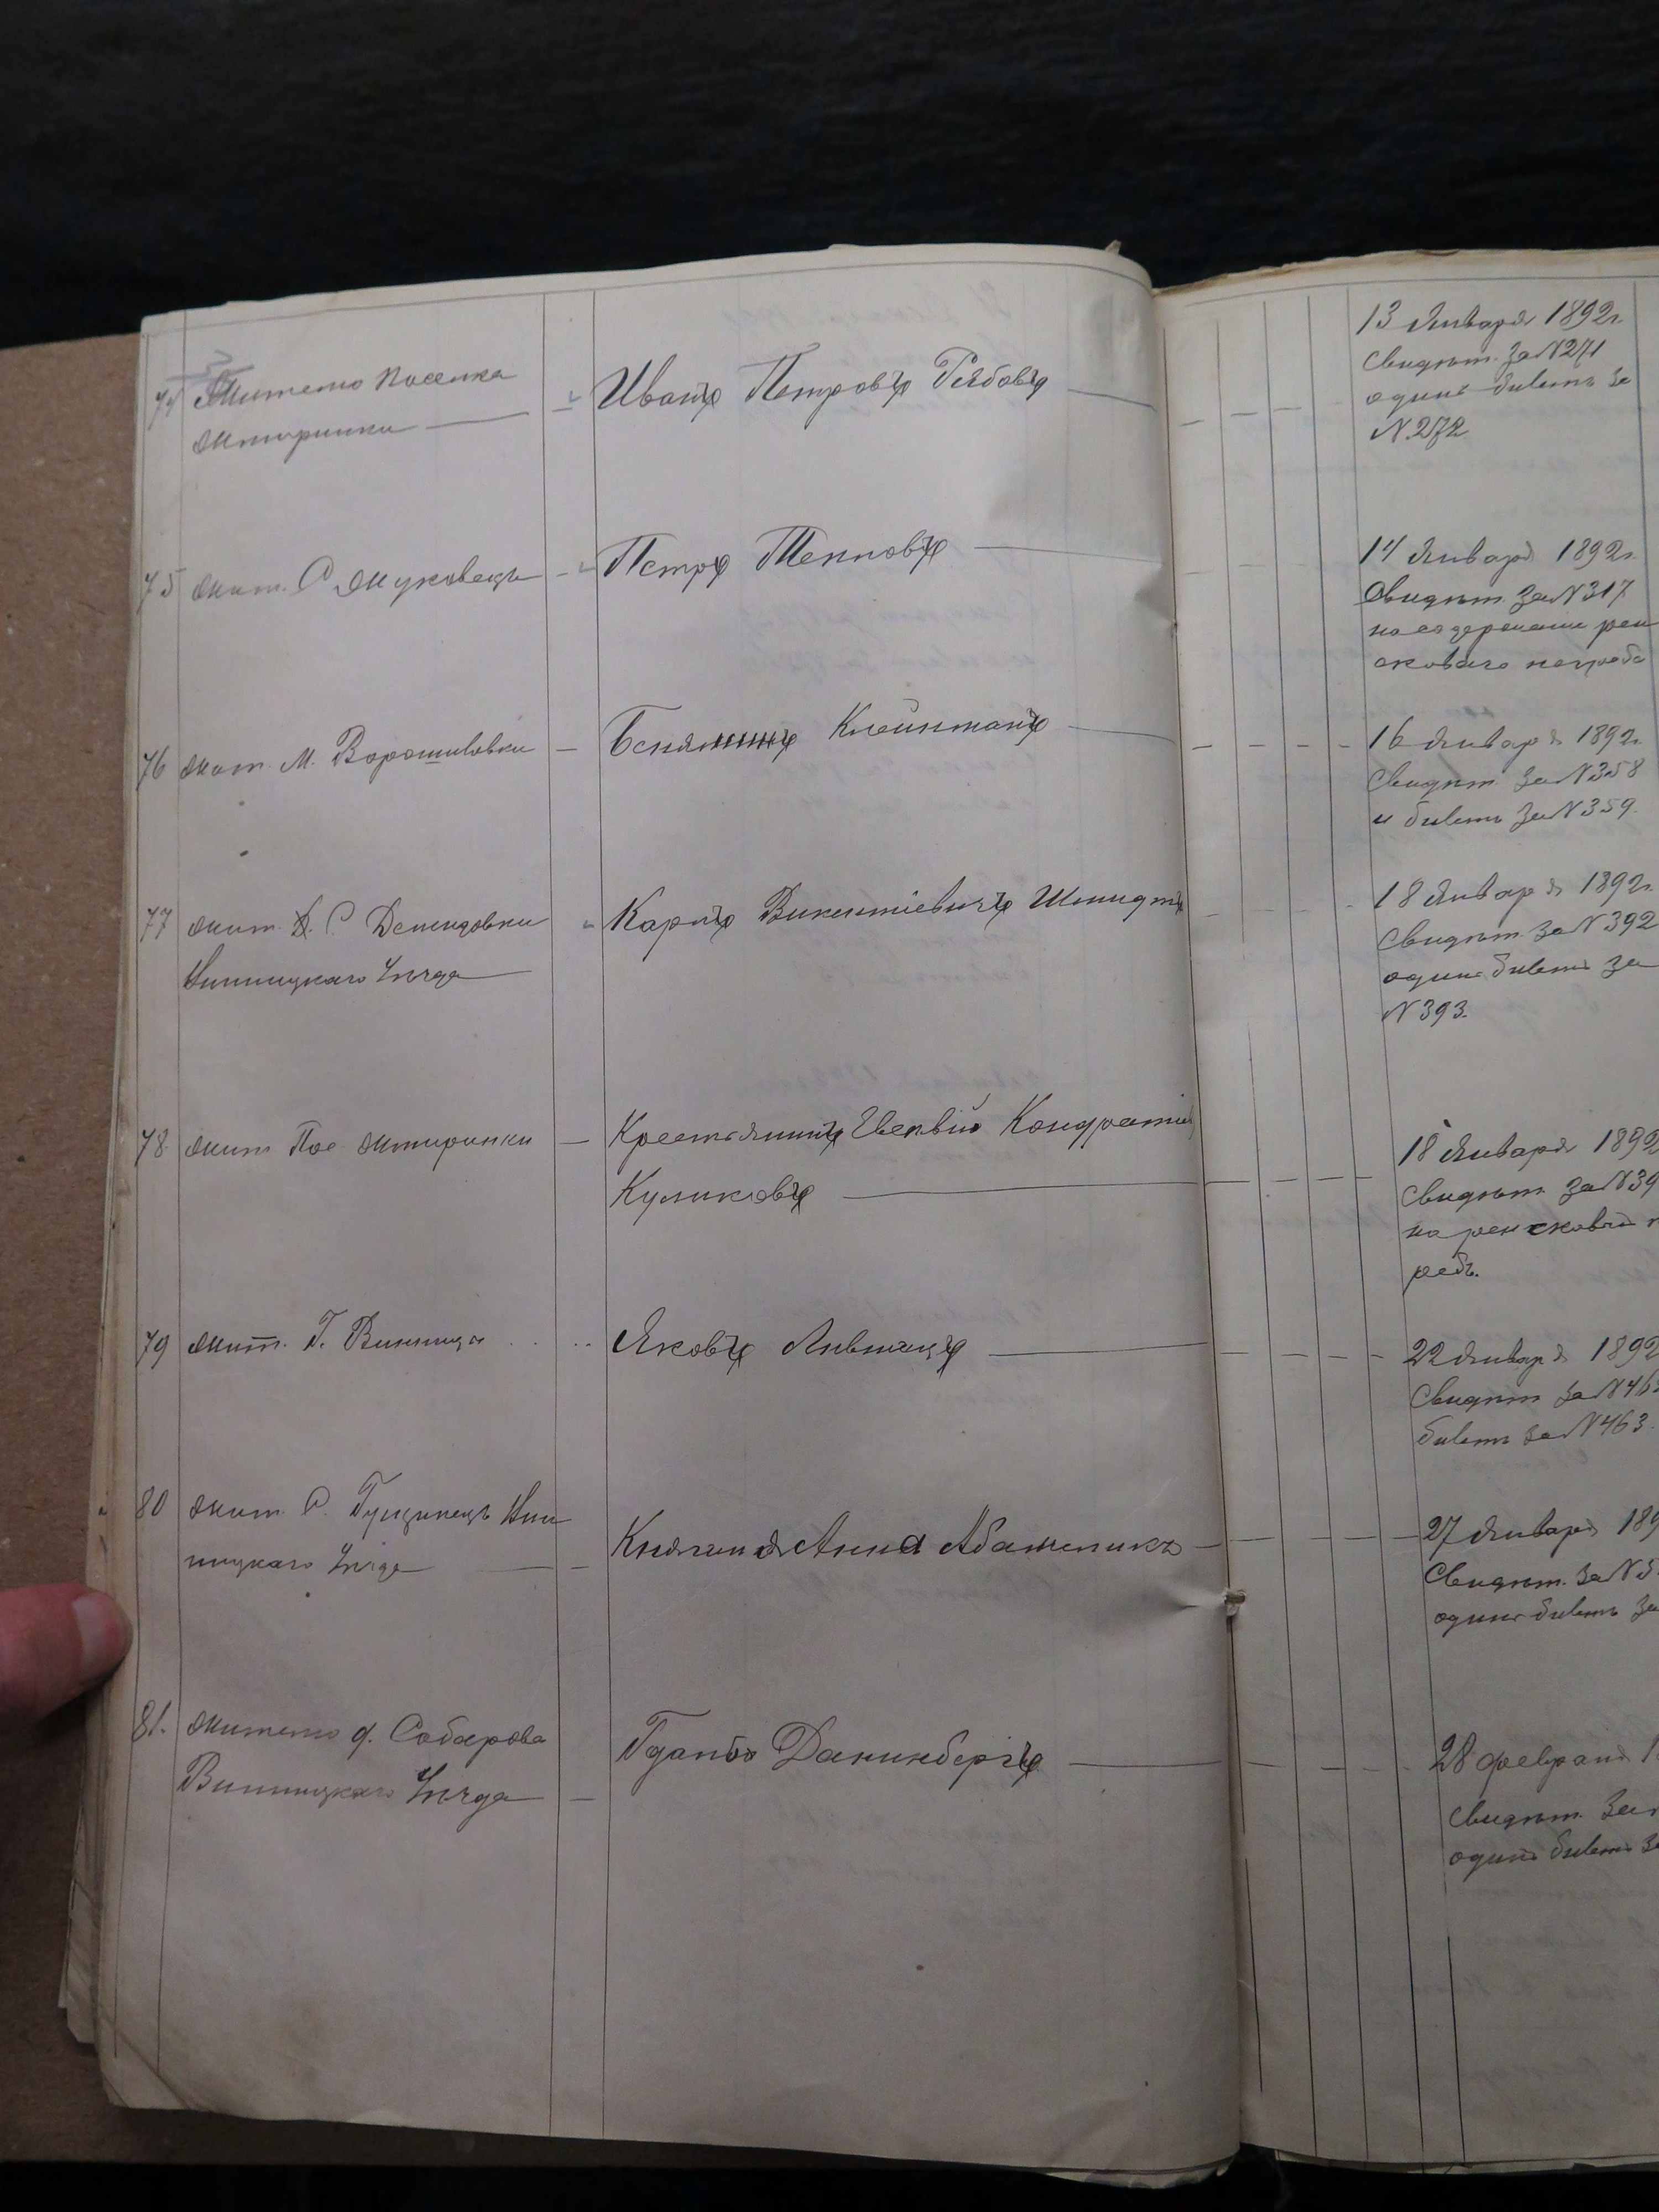 74 Жителю поселка Жмеринки — Иванъ Петровъ Рябовъ
13 Января 1892г.
Свидѣт. за N 271
одинъ билетъ за
N. 272
75 жит. С Жуковецъ — Петръ Тепловъ
14 Января 1892г.
Свидѣт. за N 317
на содержание рен
сковаго погреба
76 жит. М. Ворошиловки — Беняминъ Клейнманъ
16 Января 1892г.
Свидѣт. за N 358
и билетъ за N 359.
77 жит. С Демидовки
Винницкаго Уѣзда
Карлъ Викентіевичъ Шмидтъ
18 Января 1892г.
Свидѣт. за N 392
одинъ билетъ за
N 393.
78 жит Пос Жмеринки — Крестьянинъ Кондратій
Куликовъ
18 Января 1892
Свидѣт. за N 39
на ренсковый п
ребъ.
79 жит. Г. Винницы
Яковъ Лившицъ
22 Января 1892
Свидѣт за N 46
билетъ за N 463.
80 жит. С. Гущинецъ Вин
ницкаго Уѣзда
Княгиня Анна Абамеликъ
27 Января 189
Свидѣт. за N 5
одинъ билетъ за
81. Жителю д. Сабарова
Винницкаго Уѣзда —
Данинбергъ
28 февраля 1
Свидѣт. за
одинъ билетъ за